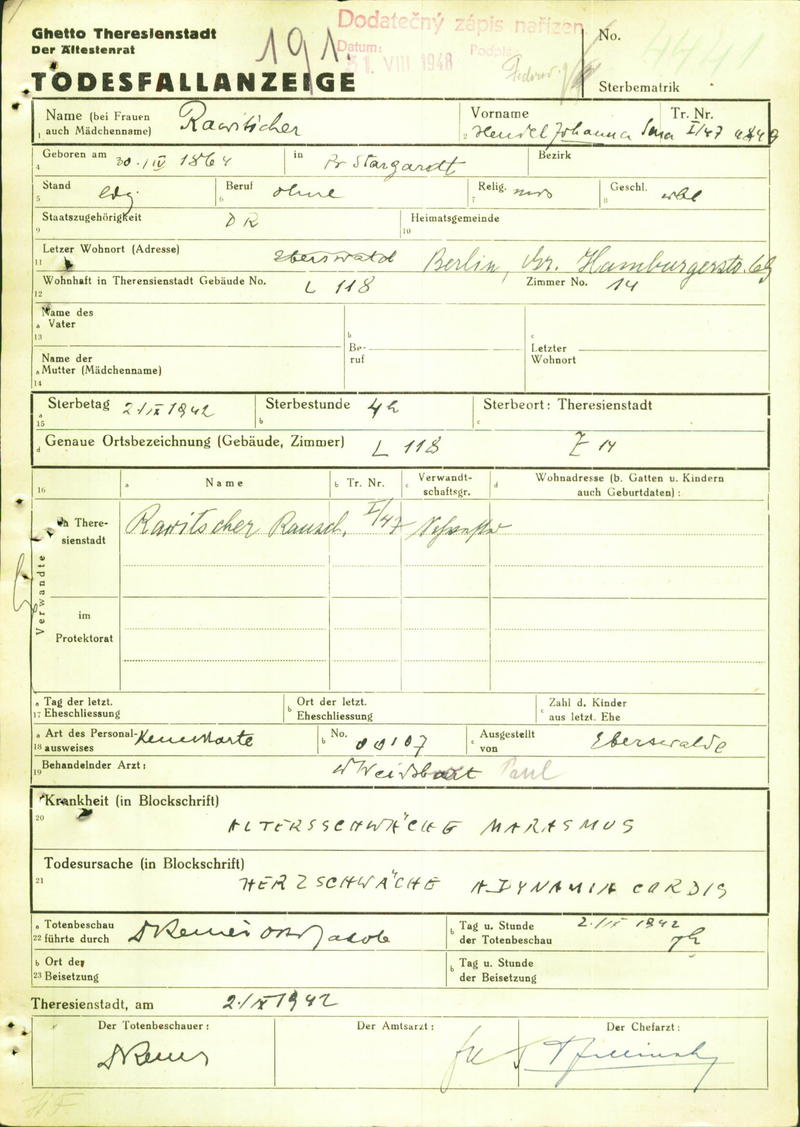 Ghetto Theresienstadt
Der Ältestenrat
TODESFALLANZEIGE
191.
Dodatečný zápis nařízen
Datum: 31. VIII 1948 Podpis
No.
4441
Sterbematrik
Name (bei Frauen auch Mädchenname) Rawitscher
1
Vorname Hendel Johanna Sara
2
Tr. Nr. I/47
Geboren am 30./IV 1864
4
in Pr Stargardt
Bezirk
Stand led.
5
Beruf ohne
6
Relig. mos
7
Geschl. wbl
8
Staatszugehörigkeit DR
9
Heimatsgemeinde
10
Letzer Wohnort (Adresse) Eberswald Berlin, Gr. Hamburgerstr.
11
Wohnhaft in Therensienstadt Gebäude No. L 118
12
Zimmer No. 14
Name des
a Vater
13
b
Be-
ruf
c
Letzter
Wohnort
Name der
a Mutter (Mädchenname)
14
Sterbetag 2/IX 1942
a
15
Sterbestunde 4h
b
Sterbeort: Theresienstadt
c
d Genaue Ortsbezeichnung (Gebäude, Zimmer) L 118 Z 14
16
a Name
b Tr. Nr.
c Verwandt-
schaftsgr.
d Wohnadresse (b. Gatten u. Kindern
auch Geburtdaten):
Verwandte
in There-
sienstadt
Rawitscher I/47
im
Protektorat
a Tag der letzt.
17 Eheschliessung
b Ort der letzt.
Eheschliessung
c Zahl d. Kinder
aus letzt. Ehe
a Art des Personal-
18 ausweises Kennkarte
b No. 00107
c Ausgestellt
von Eberswalde
Behandelnder Arzt: Paul
19
Krankheit (in Blockschrift)
20
ALTERSSCHWÄCHE MARASMUS
Todesursache (in Blockschrift)
21
HERZSCHWÄCHE ADYNAMIA CORDIS
a Totenbeschau
22 führte durch
b Tag u. Stunde
der Totenbeschau 2./IX 1942 7h
b Ort der
23 Beisetzung
b Tag u. Stunde
der Beisetzung
Theresienstadt, am 2/IX 1942
Der Totenbeschauer:
Der Amtsarzt:
Der Chefarzt: